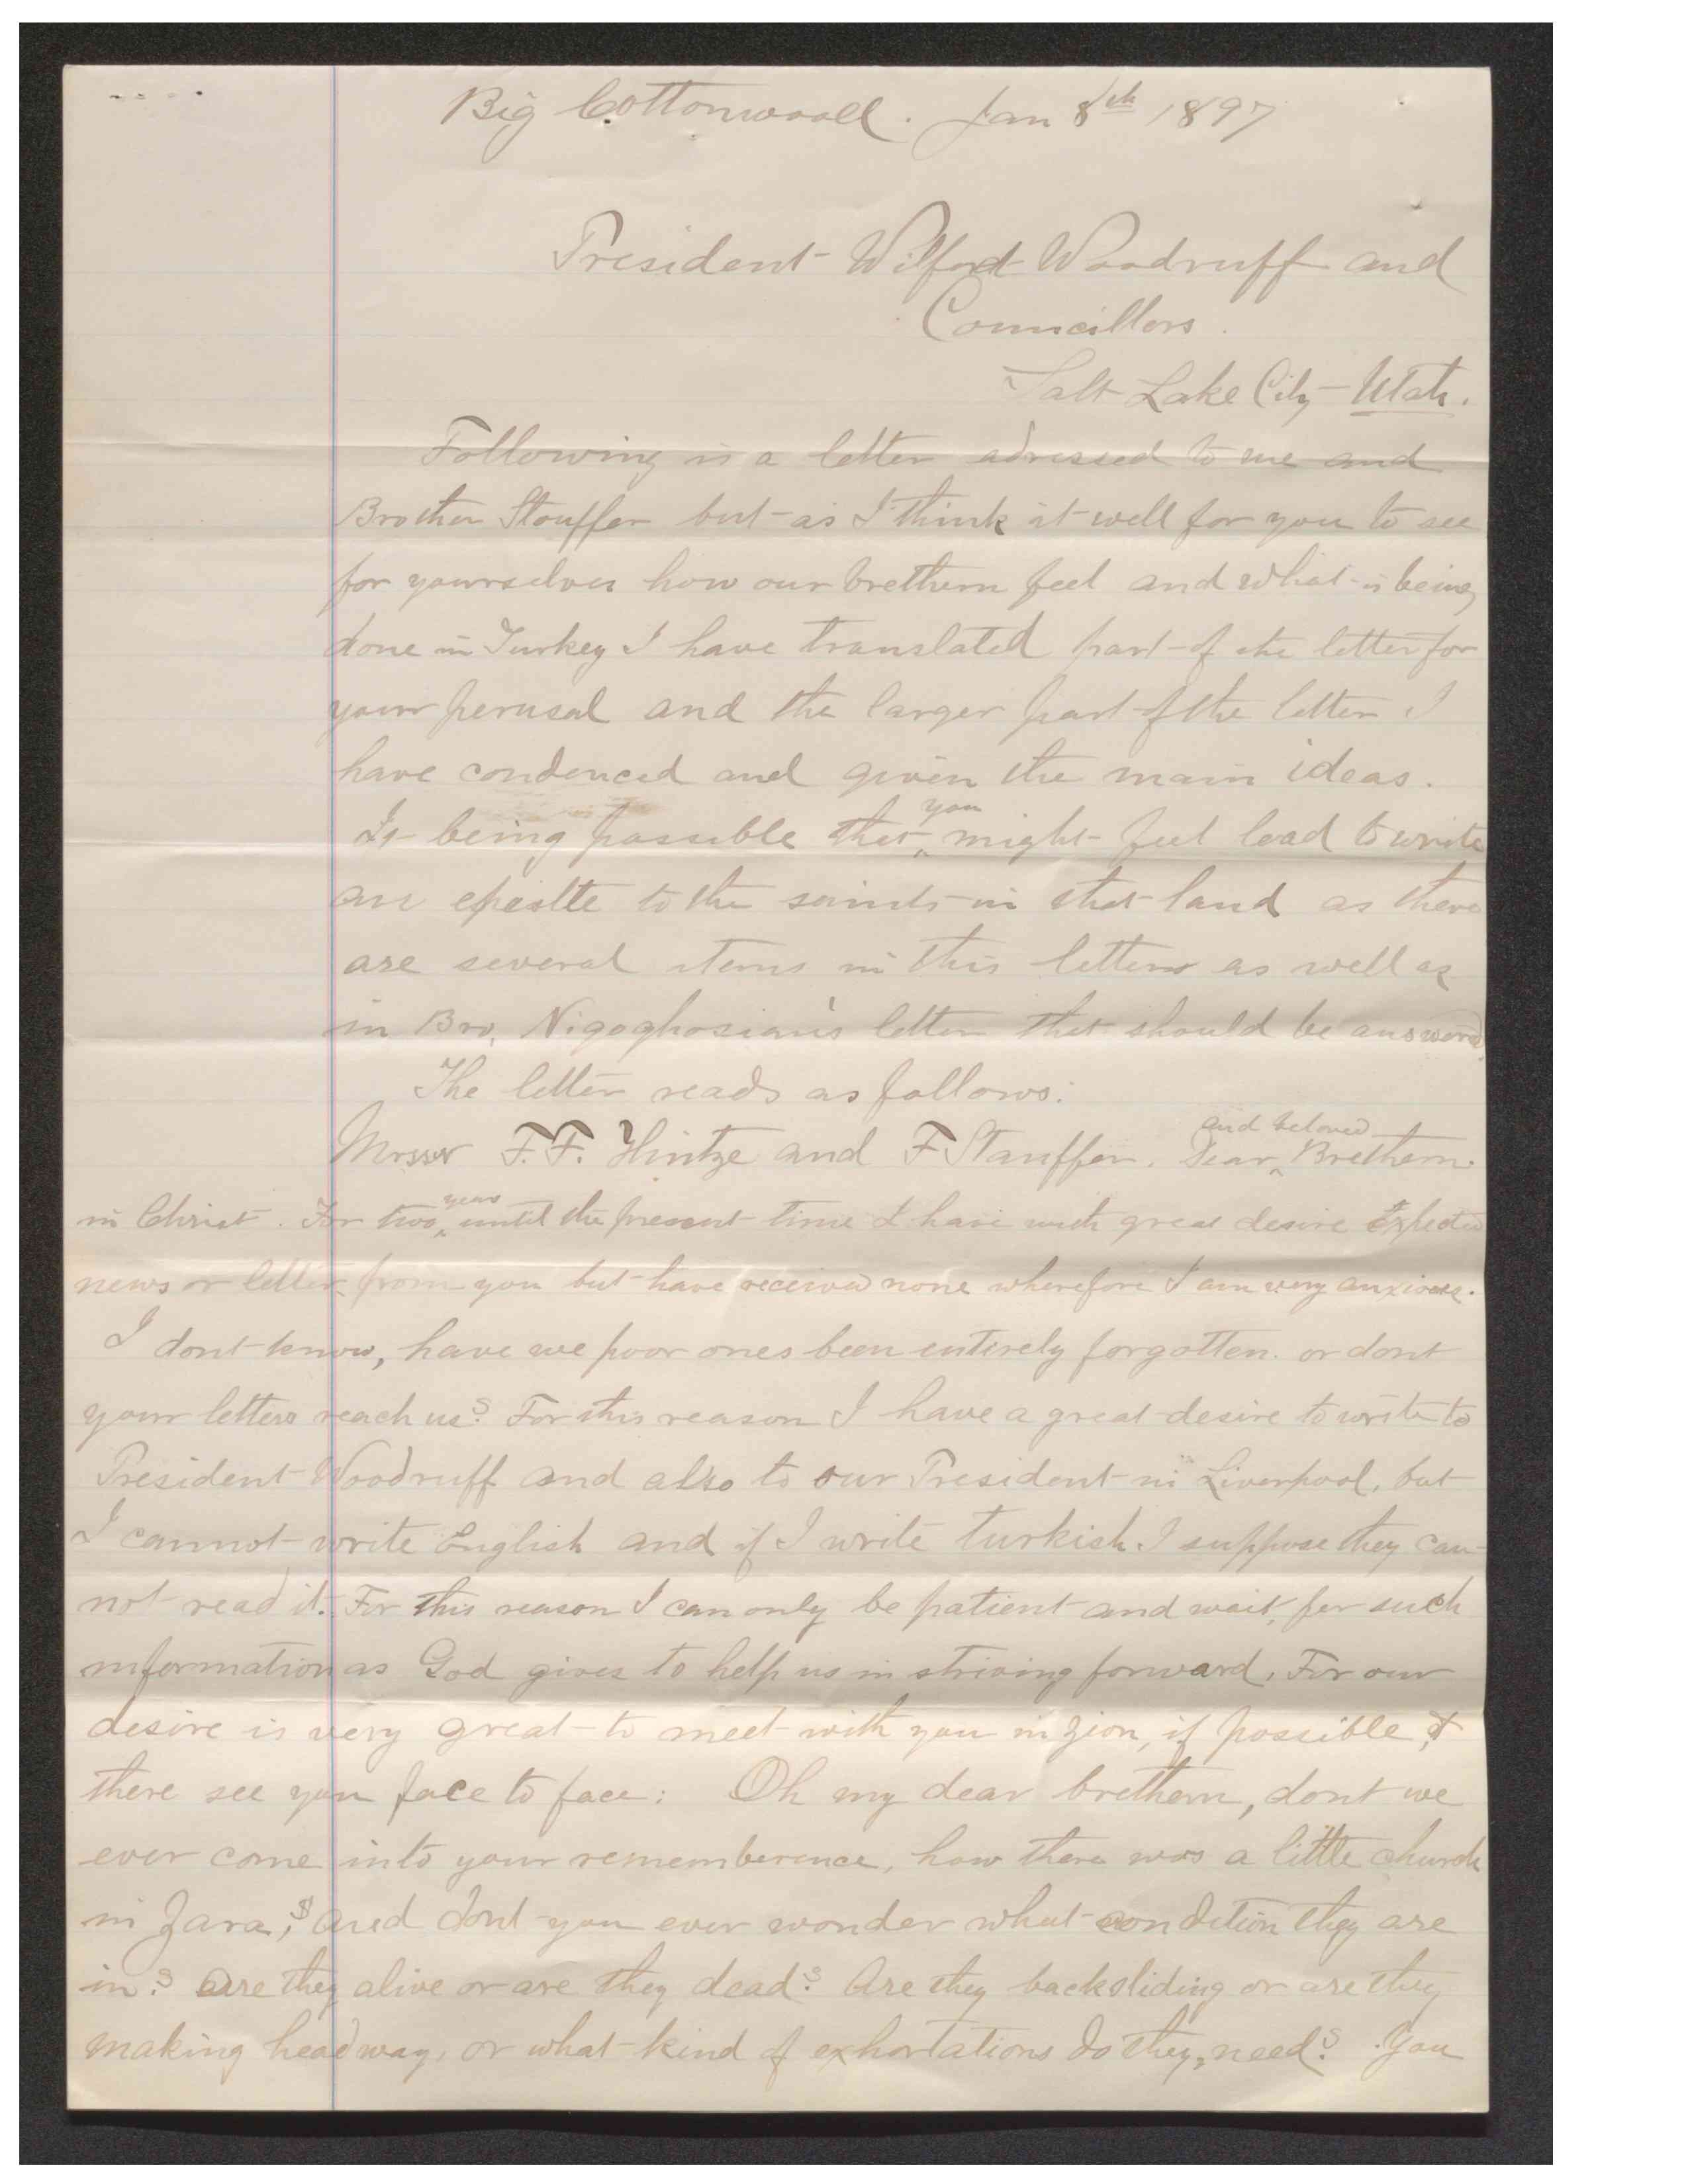 Big Cottonwood. Jan 8th 1897
President Wilford Woodruff and
Councillors.
Salt Lake City - Utah.
Following is a letter adressed to me and
Brother Stouffer but as I think it well for you to see
for yourselves how our brethern feel and what is being
done in Turkey I have translated part of the letter for
your perusal and the larger part of the letter I
have condenced and given the main ideas.
It being possible that you might feel lead to write
an epistle to the saints in that land as there
are several items in this letter as well as
in Bro. Nigoghosian's letter that should be answered.
The letter reads as follows:
Messrs F.F. Hintze and F Stauffer. Dear and beloved Brethern
in Christ. For two years until the present time I have with great desire expected
news or letter from you but have received none wherefore I am very anxious.
I dont know, have we poor ones been entirely forgotten. or dont
your letters reach us? For this reason I have a great desire to write to
President Woodruff and also to our President in Liverpool, but
I cannot write English and if I write turkish I suppose they can
not read it. For this reason I can only be patient and wait, for such
information as God gives to help us in striving forward. For our
desire is very great to meet with you in Zion, if possible, &
there see you face to face: Oh my dear brethern, dont we
ever come into your rememberence, how there was a little church
in Zara,? and dont you ever wonder what condition they are
in? Are they alive or are they dead? Are they backsliding or are they
making headway, or what kind of exhortations do they need? You